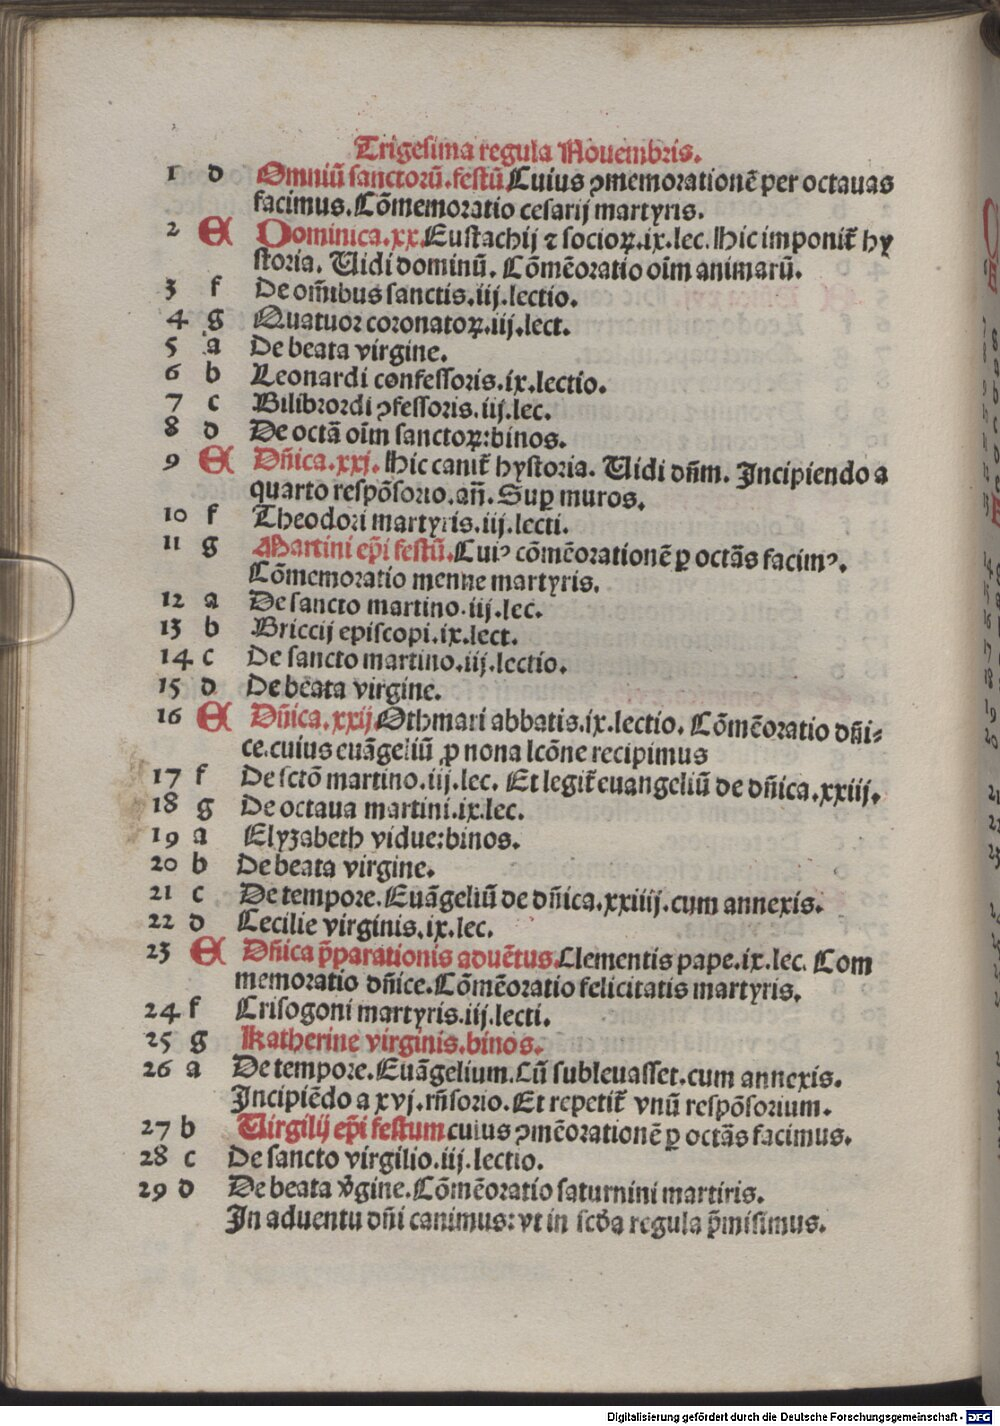 Trigesima regula Nouembris.
1 d Omniū sanctorū.festū Cuius ꝯmemorationē per octauas
facimus. Cōmemoratio cesarij martyris.
2 E Dominica.xx. Eustachij ⁊ socioꝝ.ix.lec. Hic imponit᷑ hy
storia. Uidi dominū. Cōmēoratio oīm animarū.
3 f De om̄ibus sanctis.iij.lectio.
4 g Quatuor coronatoꝝ.iij.lect.
5 a De beata virgine.
6 b Leonardi confessoris.ix.lectio.
7 c Bilibrordi ꝯfessoris.iij.lec.
8 d De octā oīm sanctoꝝ:binos.
9 E Dn̄ica.xxj. Hic canit᷑ hystoria. Uidi dn̄m. Incipiendo a
quarto respōsorio.an̄. Suꝑ muros.
10 f Theodori martyris.iij.lecti.
11 g Martini ep̄i festū. Cuiꝰ cōmēorationē ꝑ octās facimꝰ.
Cōmemoratio menne martyris.
12 a De sancto martino.iij.lec.
13 b Briccij episcopi.ix.lect.
14 c De sancto martino.iij.lectio.
15 d De beata virgine.
16 E Dn̄ica.xxij Othmari abbatis.ix.lectio. Cōmēoratio dn̄i⸗
ce.cuius euāgeliū ꝓ nona lcōne recipimus
17 f De sctō martino.iij.lec. Et legit᷑ euangeliū de dn̄ica.xxiij.
18 g De octaua martini.ix.lec.
19 a Elyzabeth vidue:binos.
20 b De beata virgine.
21 c De tempore. Euāgeliū de dn̄ica.xxiiij.cum annexis.
22 d Cecilie virginis.ix.lec.
23 E Dn̄ica p̄parationis aduētus. Clementis pape.ix.lec. Com
memoratio dn̄ice. Cōmēoratio felicitatis martyris.
24 f Crisogoni martyris.iij.lecti.
25 g Katherine virginis.binos.
26 a De tempore. Euāgelium. Cū subleuasset.cum annexis.
Incipiēdo a xvj.rn̄sorio. Et repetit᷑ vnū respōsorium.
27 b Uirgilij ep̄i festum cuius ꝯmēorationē ꝑ octās facimus.
28 c De sancto virgilio.iij.lectio.
29 d De beata v̔gine. Cōmēoratio saturnini martiris.
In aduentu dn̄i canimus:vt in scd̄a regula p̄misimus.
Digitalisierung gefördert durch die Deutsche Forschungsgemeinschaft - DFG